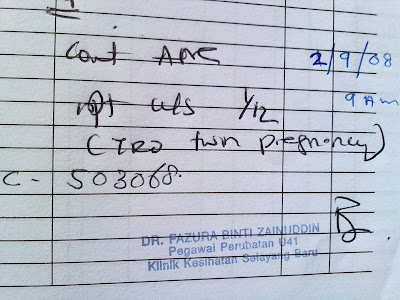 Cont ANC 2/9/08
rpt u/s 1/12 9 Am
(TRO twin pregnancy)
C - 503068.
DR. FAZURA BINTI ZAINUDDIN
Pegawai Perubatan U41
Klinik Kesihatan Selayang Baru